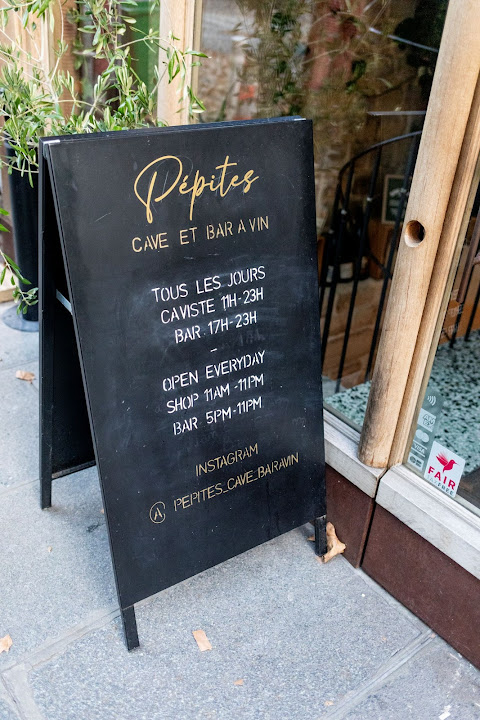 Pépites
CAVE ET BAR A VIN
TOUS LES JOURS
CAVISTE 11H-23H
BAR 17H-23H
-
OPEN EVERYDAY
SHOP 11AM-11PM
BAR 5PM-11PM
INSTAGRAM
@ PEPITES_CAVE_BARAVIN
FAIR